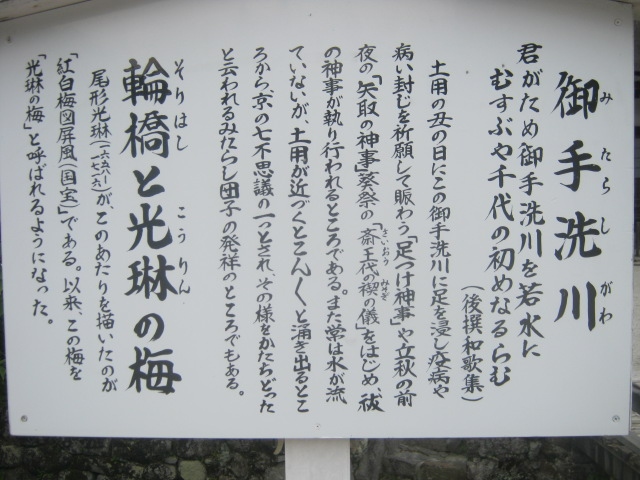 御手洗川
みたらしがわ
君がため御手洗川を若水に
むすぶや千代の初めなるらむ
(後撰和歌集)
土用の丑の日にこの御手洗川に足を浸し疫病や
病い封じを祈願して賑わう「足つけ神事」や立秋の前
夜の「矢取の神事」葵祭の「斎王代の禊の儀」をはじめ、祓
さいおう みそぎ
の神事が執り行われるところである。また常は水が流
ていないが、土用が近づくとこんくと涌き出るとこ
ろから、京の七不思議の一つとされ、その様をかたどった
と云われるみたらし団子の発祥のところでもある。
輪橋と光琳の梅
そりはし こうりん
尾形光琳(一六五八ー一七一六)が、このあたりを描いたのが
「紅白梅図屏風(国宝)」である。以来、この梅を
「光琳の梅」と呼ばれるようになった。